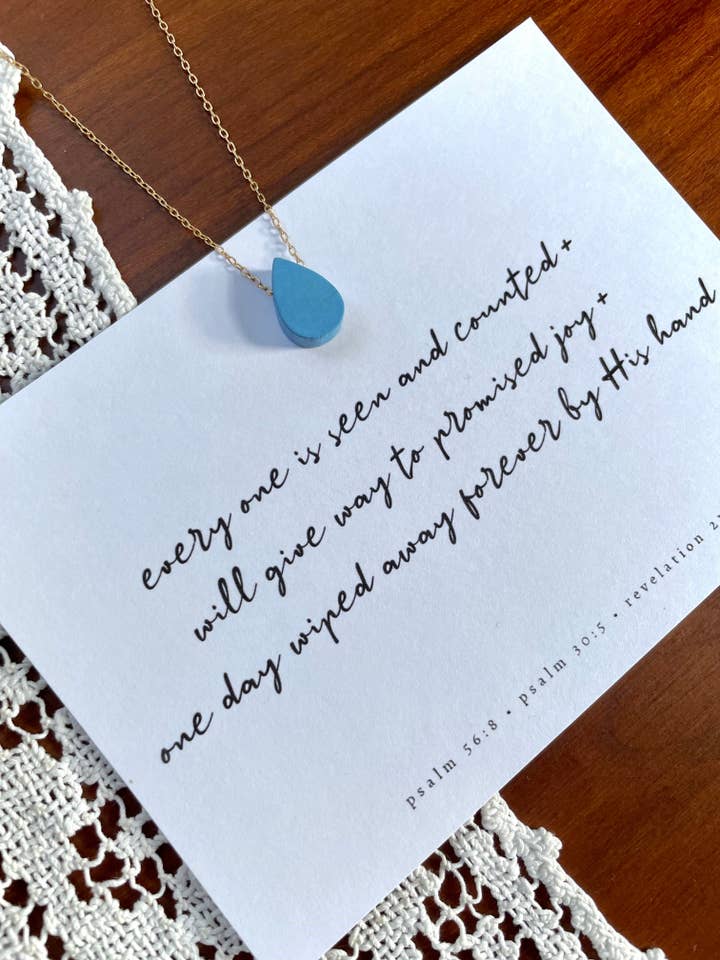 every one is seen and counted +
will give way to promised joy +
one day wiped away forever by His hand
psalm 56:8 • psalm 30:5 • revelation